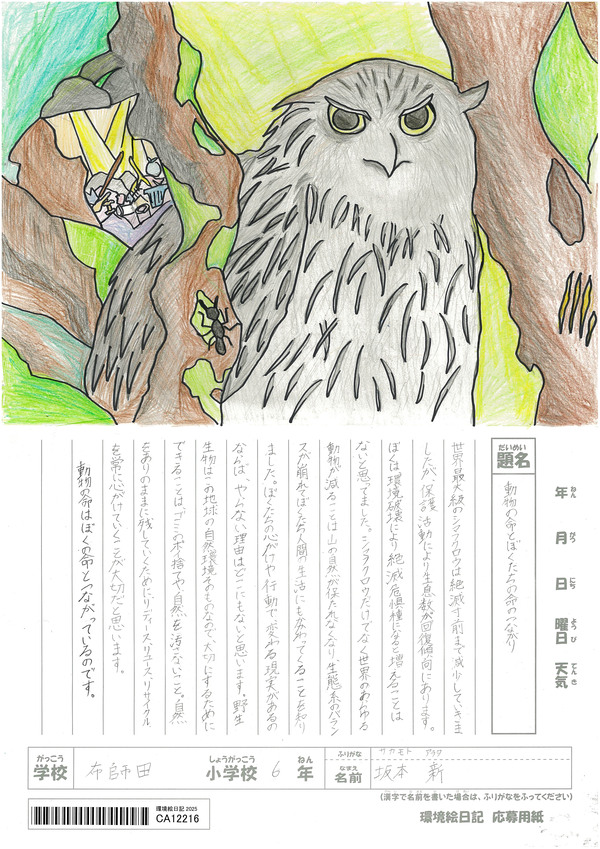 題名
だいめい
動物の命とぼくたちの命のつながり
年
ねん
月
がつ
日
にち
曜日
ようび
天気
てんき
世界最大級のシマフクロウは絶滅寸前まで減少していきま
したが、保護活動により生息数が回復傾向にあります。
ぼくは環境破壊により絶滅危惧種になると増えることは
ないと思ってました。シマフクロウだけでなく世界のあらゆる
動物が減ることは山の自然が保たれなくなり、生態系のバラン
スが崩れてぼくたち人間の生活にも変わってくることを知り
ました。ぼくたちの心がけや行動で変わる現実があるの
ならば、やらない理由はどこにもないと思います。野生
生物はこの地球の自然環境そのものなので、大切にするために
できることは、ゴミのポイ捨てや自然を汚さないこと。自然
をありのままに残していくためにリデュース、リユース、リサイクル
を常に心がけていくことが大切だと思います。
動物の命はぼくの命とつながっているのです。
がっこう
学校
布師田
しょうがっこう
小学校
6
ねん
年
ふりがな
サカモト アラタ
なまえ
名前
坂本 新
(漢字で名前を書いた場合は、ふりがなをふってください)
環境絵日記 2025
CA12216
環境絵日記 応募用紙